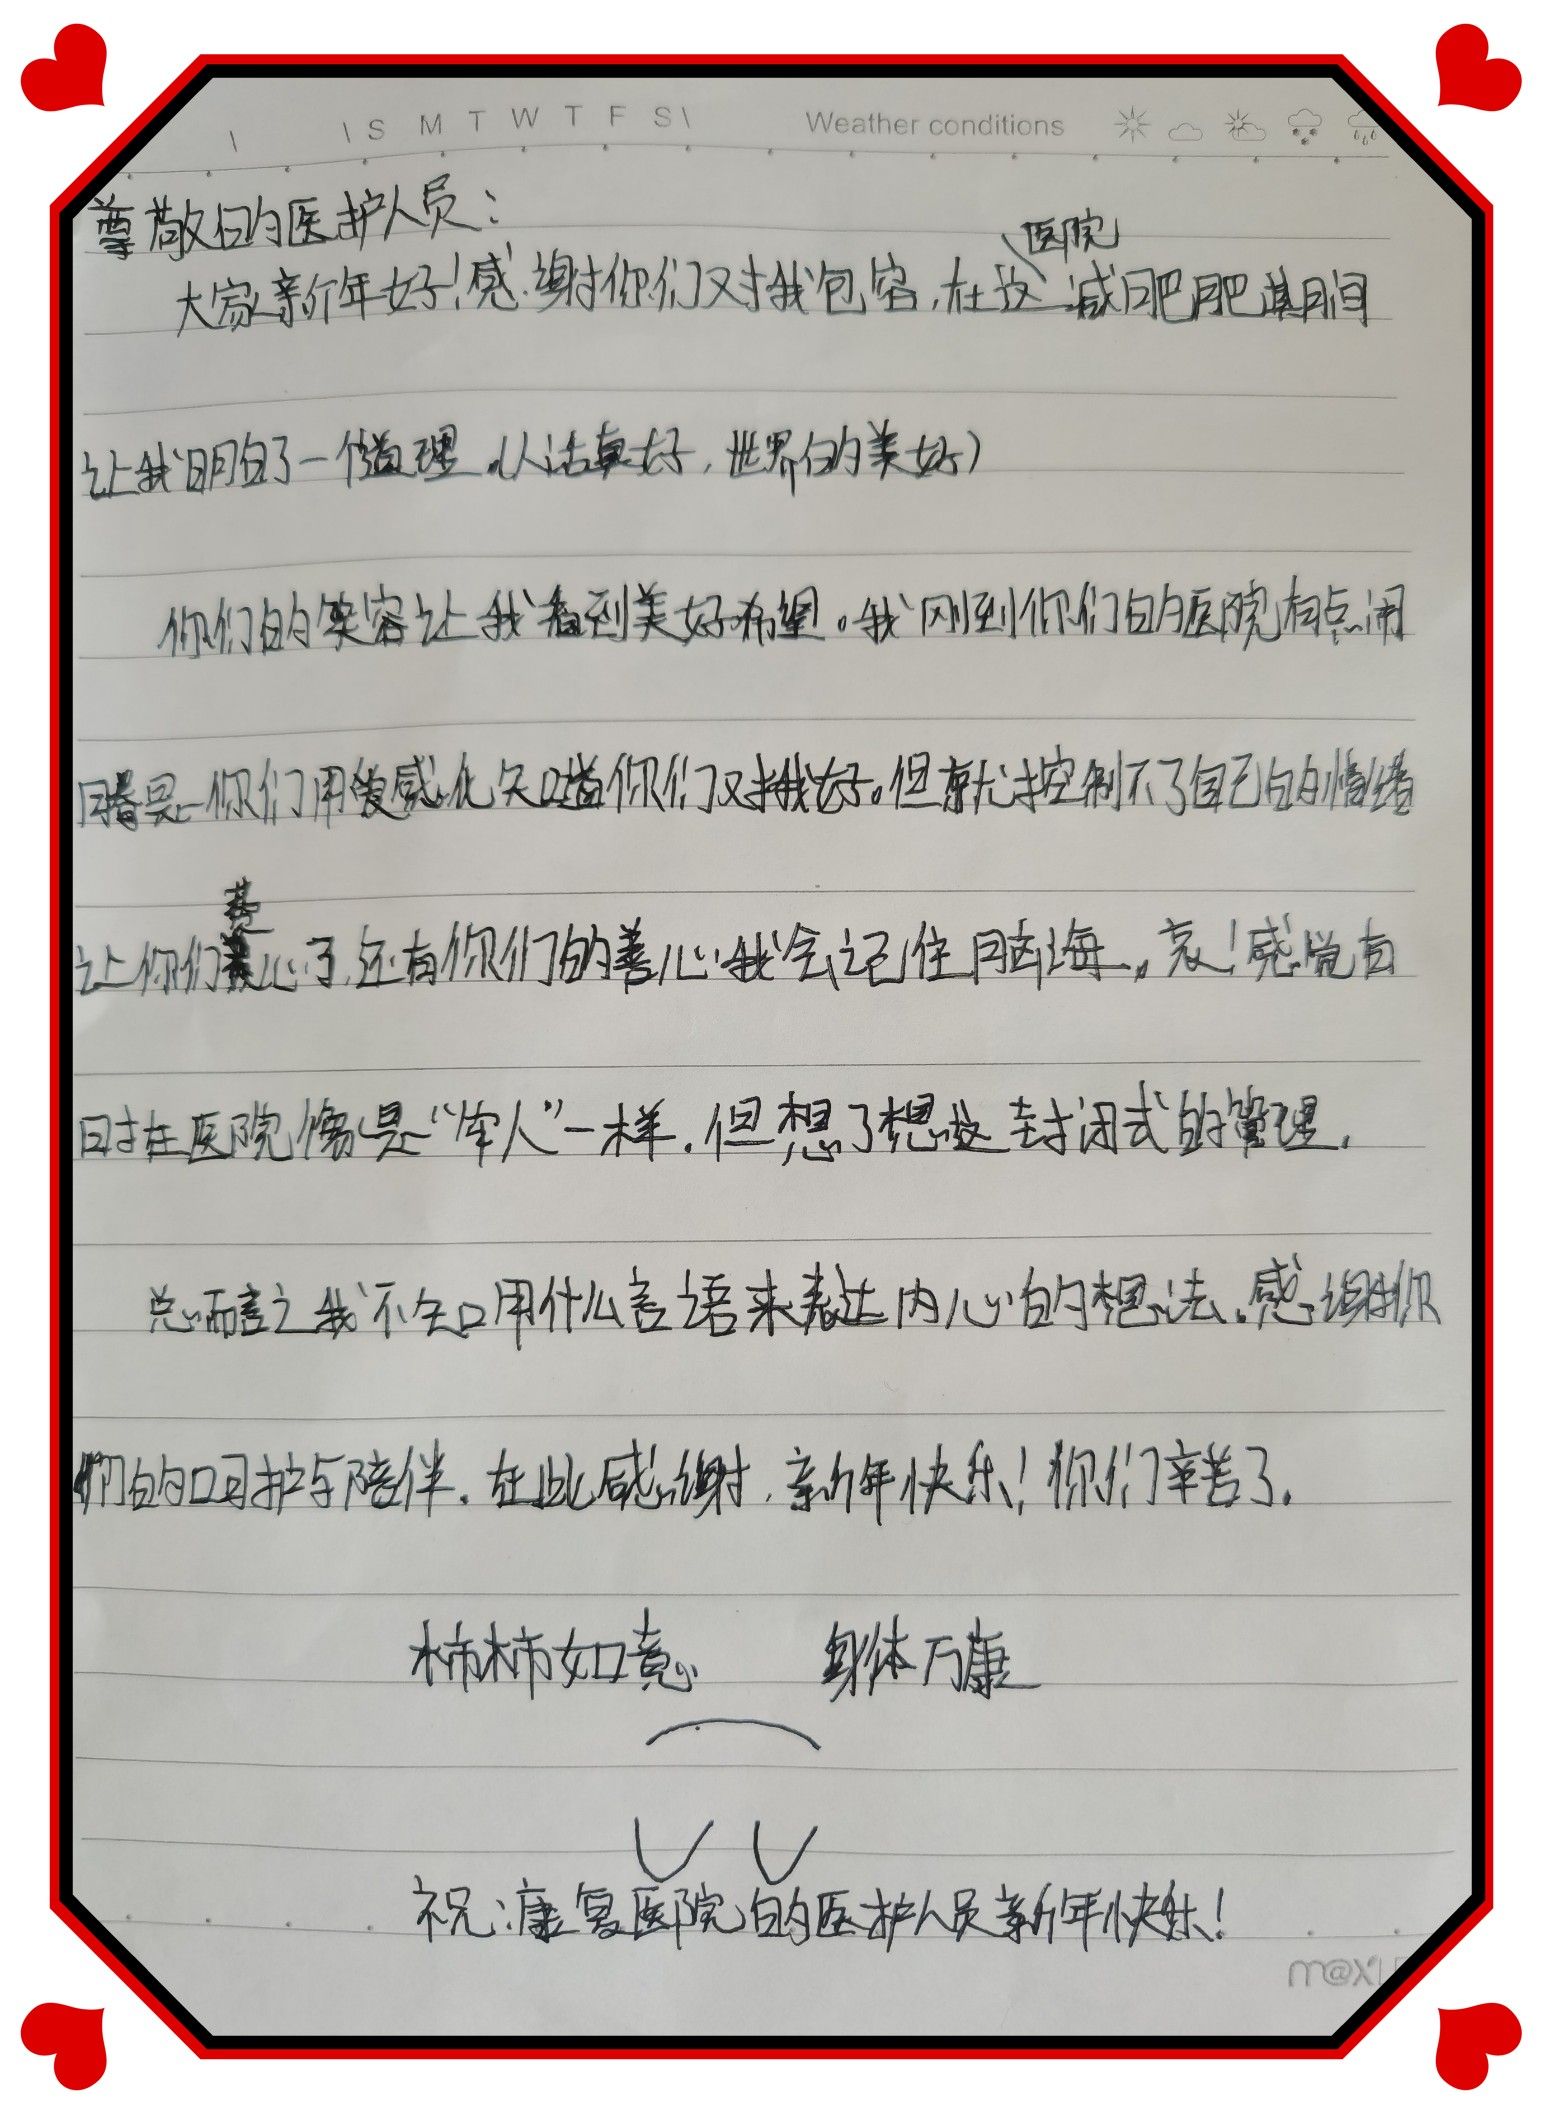 S M T W T F S
Weather conditions
尊敬的医护人员：
大家新年好！感谢你们对我包容，在这医院减肥肥其间
让我明白了一个道理。（人活真好，世界的美好）
你们的笑容让我看到美好希望。我刚到你们的医院有点闹
但是你们用爱感化知道你们对我好。但就控制不了自己的情绪
让你们 心了，还有你们的善心我会记住脑海。哀！感觉有
时在医院像是“牢人”一样，但想了想这封闭式的管理。
总而言之我不知用什么言语来表达内心的想法。感谢你
们的呵护与陪伴。在此感谢，新年快乐！你们辛苦了。
柿柿如意 身体万康
祝：康复医院的医护人员新年快乐！
m@xl